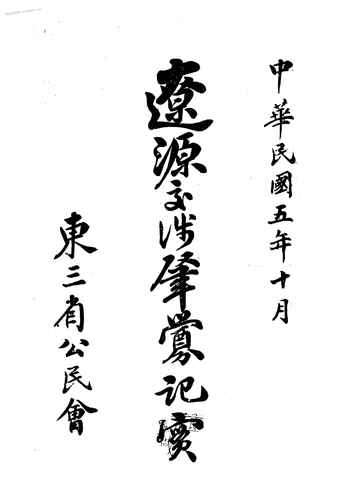 中華民國五年十月
遼源交涉肇釁記實
東三省公民會